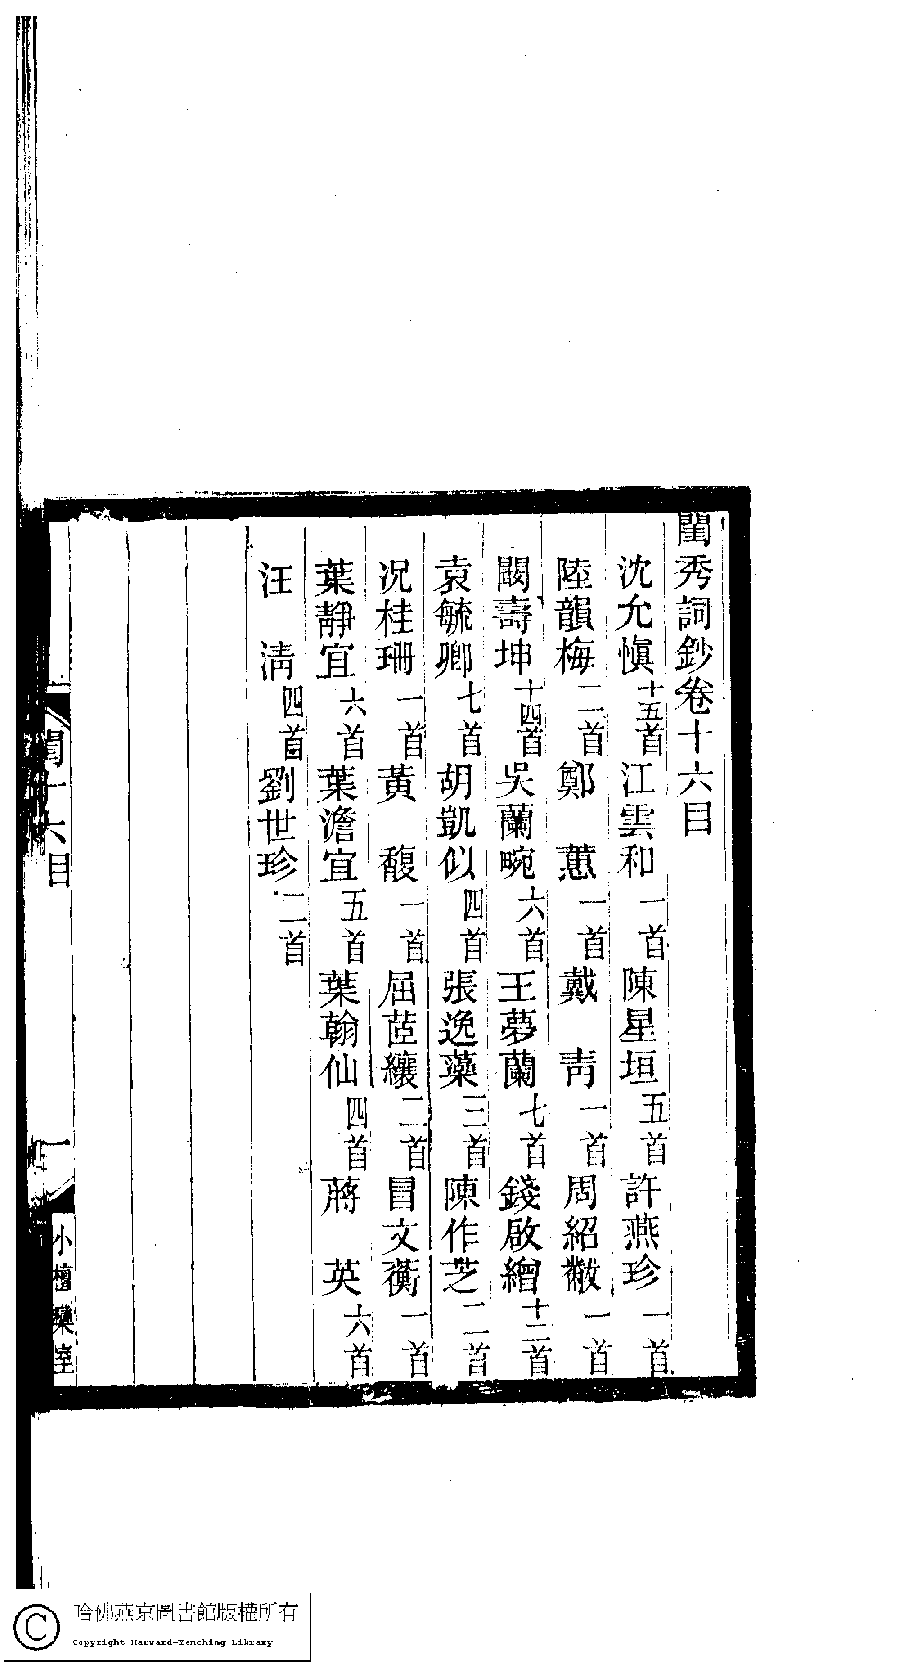 閨秀詞鈔卷十六目
沈允愼十五首 江雲和一首 陳星垣五首 許燕珍一首
陸韻梅二首 鄭蕙一首 戴靑一首 周紹黻一首
闞壽坤十四首 吳蘭畹六首 王夢蘭七首 錢啟繒十二首
袁毓卿七首 胡凱似四首 張逸藥三首 陳作芝二首
况桂珊一首 黃馥一首 屈茝纕二首 冒文蘅一首
葉靜宜六首 葉澹宜五首 葉翰仙四首 蔣英六首
汪淸四首 劉世珍二首
閨十六目 一 小檀欒室
哈佛燕京圖書館版權所有
Copyright Harvard-Yenching Library